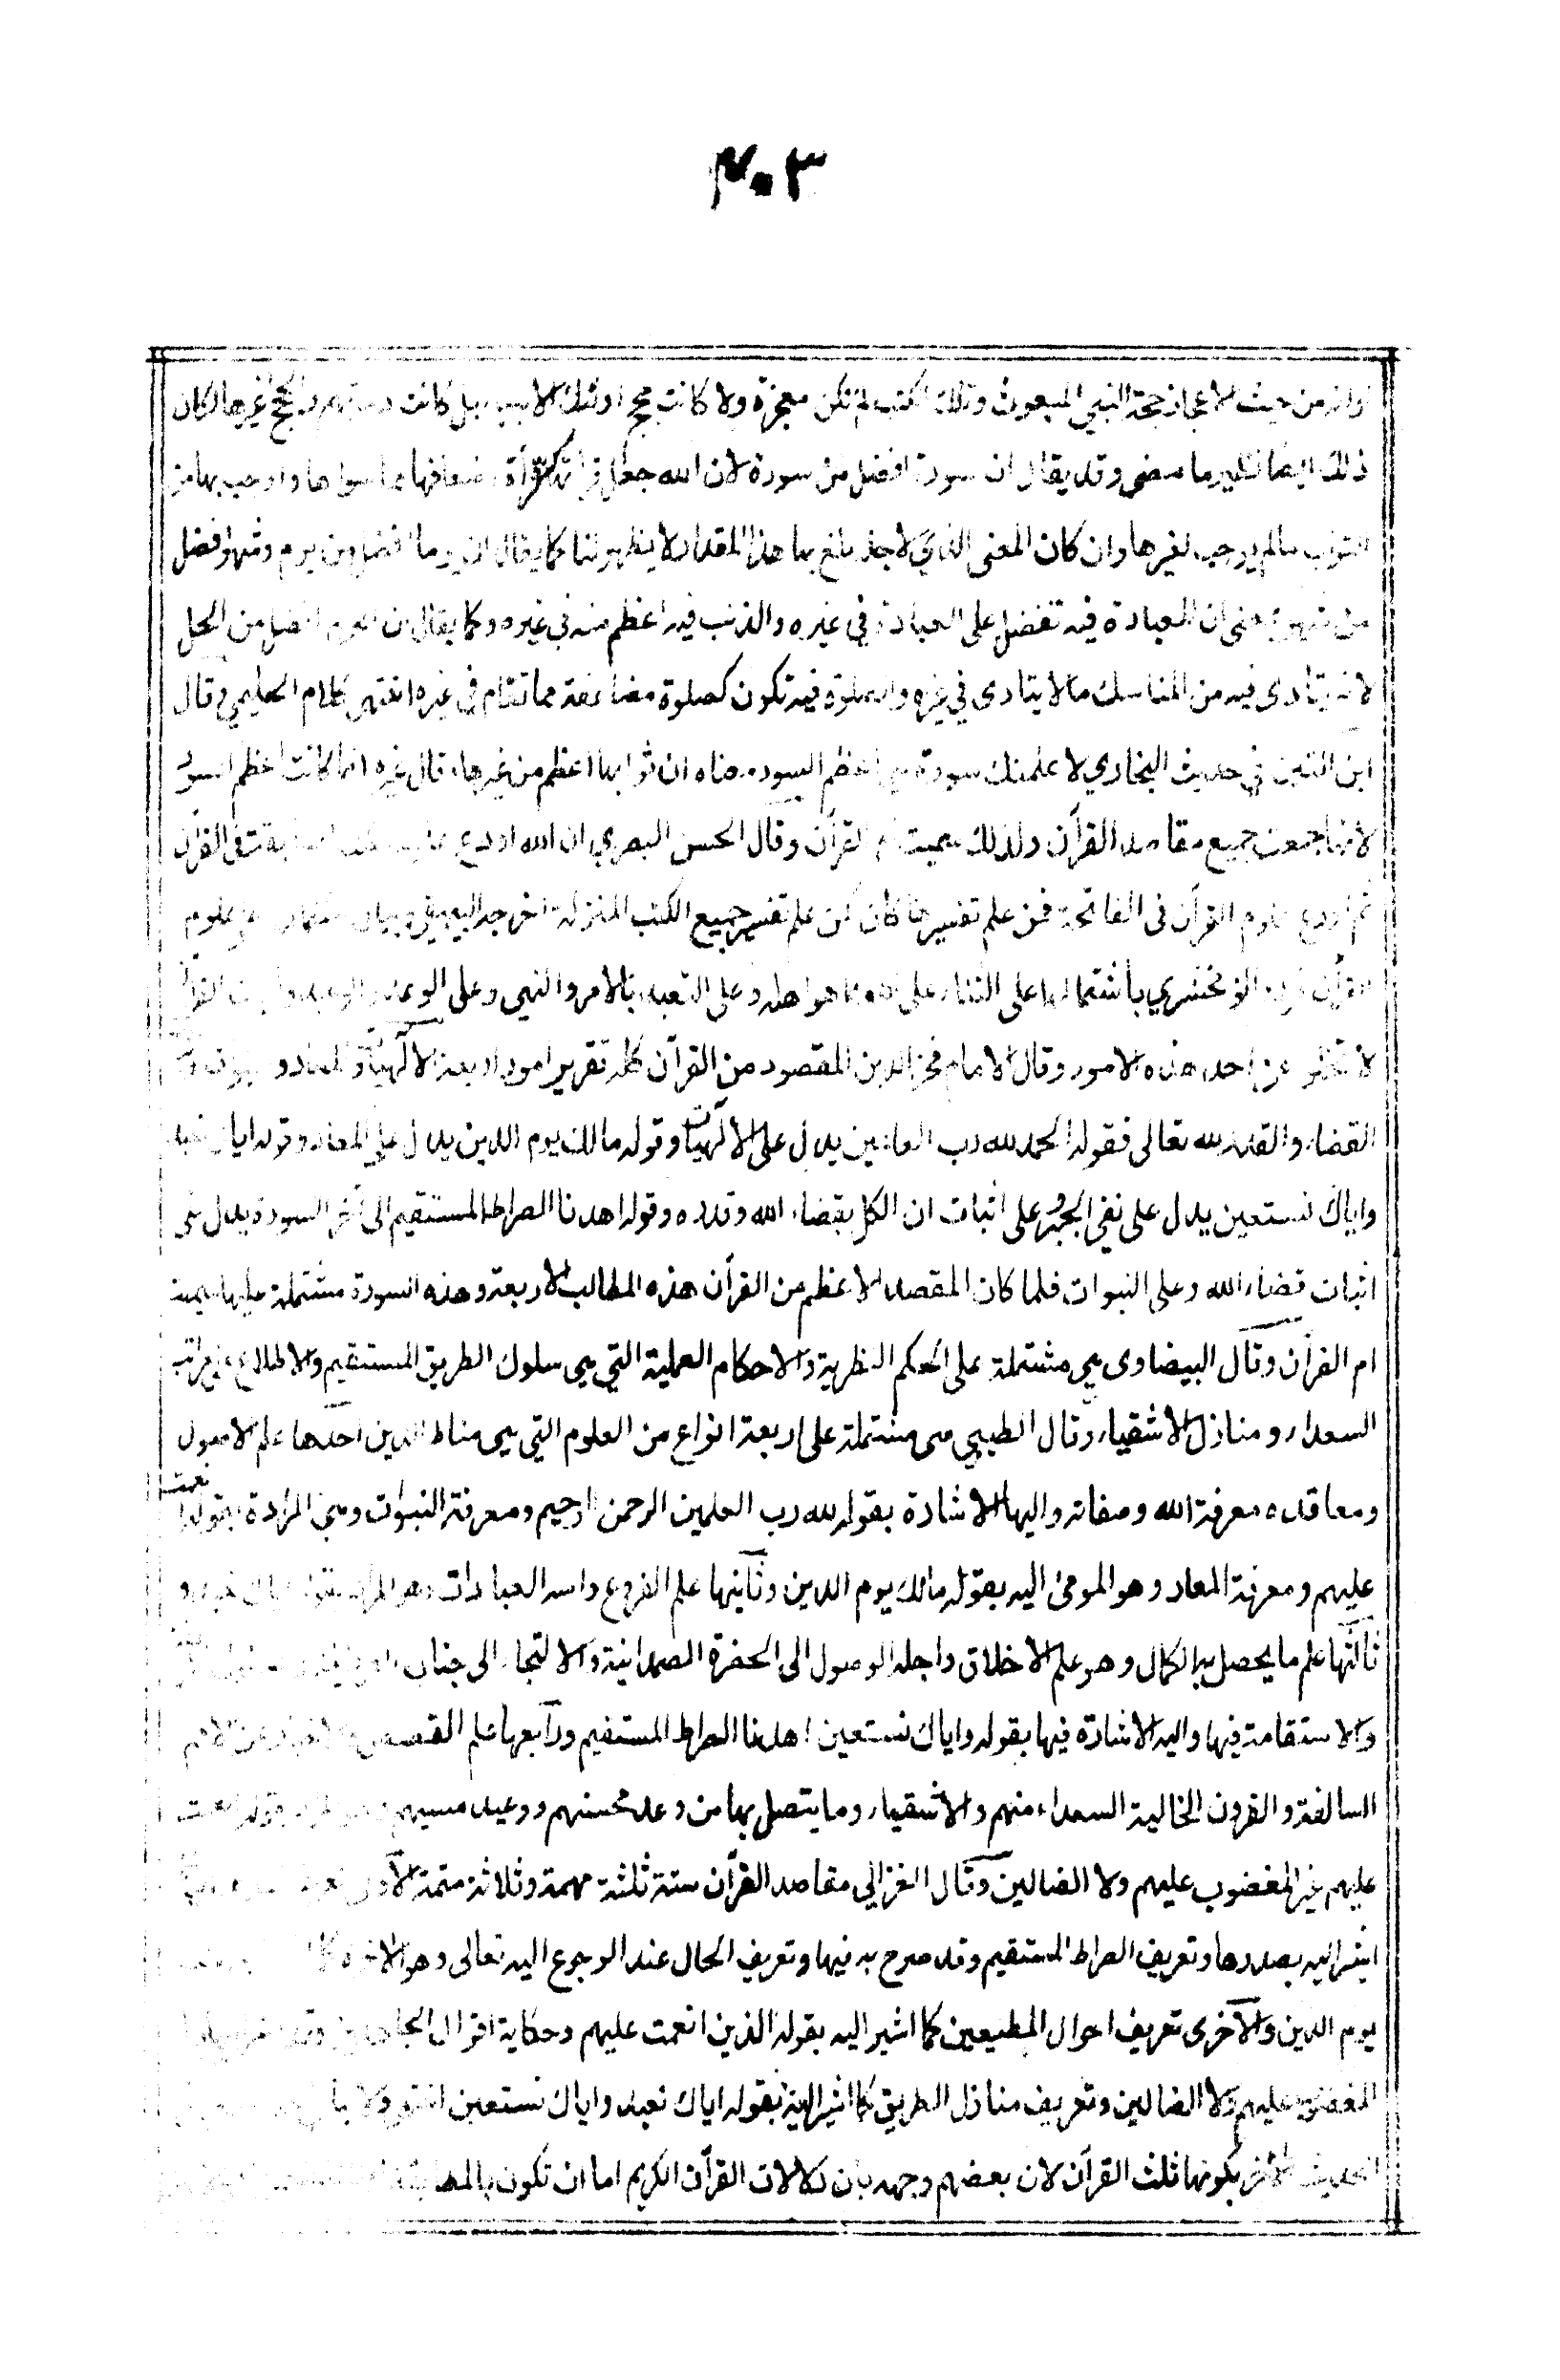 ٣٠٣
من حيث الاعجاز حجة النبي المبعوث وتلك الكتب لم تكن معجزة ولا كانت حجج اولئك الانبياء بل كانت دعوتهم والحجج غيرها لكان
ذلك ايضا نظير ما مضى وقد يقال ان سورة افضل من سورة لان الله جعل قراءتها كقراءة اضعافها مما سواها واوجب بها من
الثواب مالم يوجب لغيرها وان كان المعنى الذي لاجله بلغ بها هذا المقدار لا يظهر لنا كما يقال ان يوما افضل من يوم وشهرا افضل
من شهر بمعنى ان العبادة فيه تفضل على العبادة في غيره والذنب فيه اعظم منه في غيره وكما يقال ان الحرم افضل من الحل
لانه يتادى فيه من المناسك ما لا يتادى في غيره والصلوة فيه تكون كصلوة مضاعفة مما تقام في غيره انتهى كلام الحليمي وقال
ابن التين في حديث البخاري لاعلمنك سورة هي اعظم السور معناه ان ثوابها اعظم من غيرها وقال غيره انما كانت اعظم السور
لانها جمعت جميع مقاصد القرآن ولذلك سميت ام القرآن وقال الحسن البصري ان الله اودع علوم الكتب السابقة في القرآن
ثم اودع علوم القرآن فى الفاتحة فمن علم تفسيرها كان كمن علم تفسير جميع الكتب المنزلة اخرجه البيهقي وبيان اشتمالها على علوم
القرآن قرره الزمخشري باشتمالها على الثناء على الله بما هو اهله وعلى التعبد بالامر والنهي وعلى الوعد والوعيد وآيات القرآن
لا تخلو عن احد هذه الامور وقال الامام فخر الدين المقصود من القرآن كله تقرير امور اربعة الالٓهيات والمعاد والنبوات و
القضاء والقدر لله تعالى فقوله الحمد لله رب العالمين يدل على الالٓهيات وقوله مالك يوم الدين يدل على المعاد وقوله اياك نعبد
واياك نستعين يدل على نفي الجبر وعلى اثبات ان الكل بقضاء الله وقدره وقوله اهدنا الصراط المستقيم الى آخر السورة يدل على
اثبات قضاء الله وعلى النبوات فلما كان المقصد الاعظم من القرآن هذه المطالب الاربعة وهذه السورة مشتملة عليها سميت
ام القرآن وقال البيضاوى هي مشتملة على الحكم النظرية والاحكام العملية التي هي سلوك الطريق المستقيم والاطلاع على مراتب
السعداء ومنازل الاشقياء وقال الطيبي هى مشتملة على اربعة انواع من العلوم التي هي مناط الدين احدها علم الاصول
ومعاقده معرفة الله وصفاته واليها الاشارة بقوله لله رب العلمين الرحمن الرحيم ومعرفة النبوات وهي المرادة بقوله انعمت
عليهم ومعرفة المعاد وهو المومئ اليه بقوله مالك يوم الدين وثانيها علم الفروع واسه العبادات وهو المراد بقوله اياك نعبد و
ثالثها علم ما يحصل به الكمال وهو علم الاخلاق واجله الوصول الى الحضرة الصمدانية والالتجاء الى جناب
والاستقامة فيها واليه الاشارة فيها بقوله واياك نستعين اهدنا الصراط المستقيم ورابعها علم القصص والاخبار عن الامم
السالفة والقرون الخالية السعداء منهم والاشقياء وما يتصل بها من وعد محسنهم ووعيد مسيهم وهو المراد بقوله انعمت
عليهم غير المغضوب عليهم ولا الضالين وقال الغزالي مقاصد القرآن ستة ثلثة مهمة وثلاثة متمة الاول
اشير اليه بصدرها وتعريف الصراط المستقيم وقد صرح به فيها وتعريف الحال عند الرجوع اليه تعالى وهو الآخرة
يوم الدين والاخرى تعريف احوال المطيعين كما اشير اليه بقوله الذين انعمت عليهم وحكاية اقوال الجاحدين
المغضوب عليهم ولا الضالين وتعريف منازل الطريق كما اشير اليه بقوله اياك نعبد واياك نستعين انتهى ولا
الحديث الآخر بكونها ثلث القرآن لان بعضهم وجهه بان دلالات القرآن الكريم اما ان تكون بالمطابقة